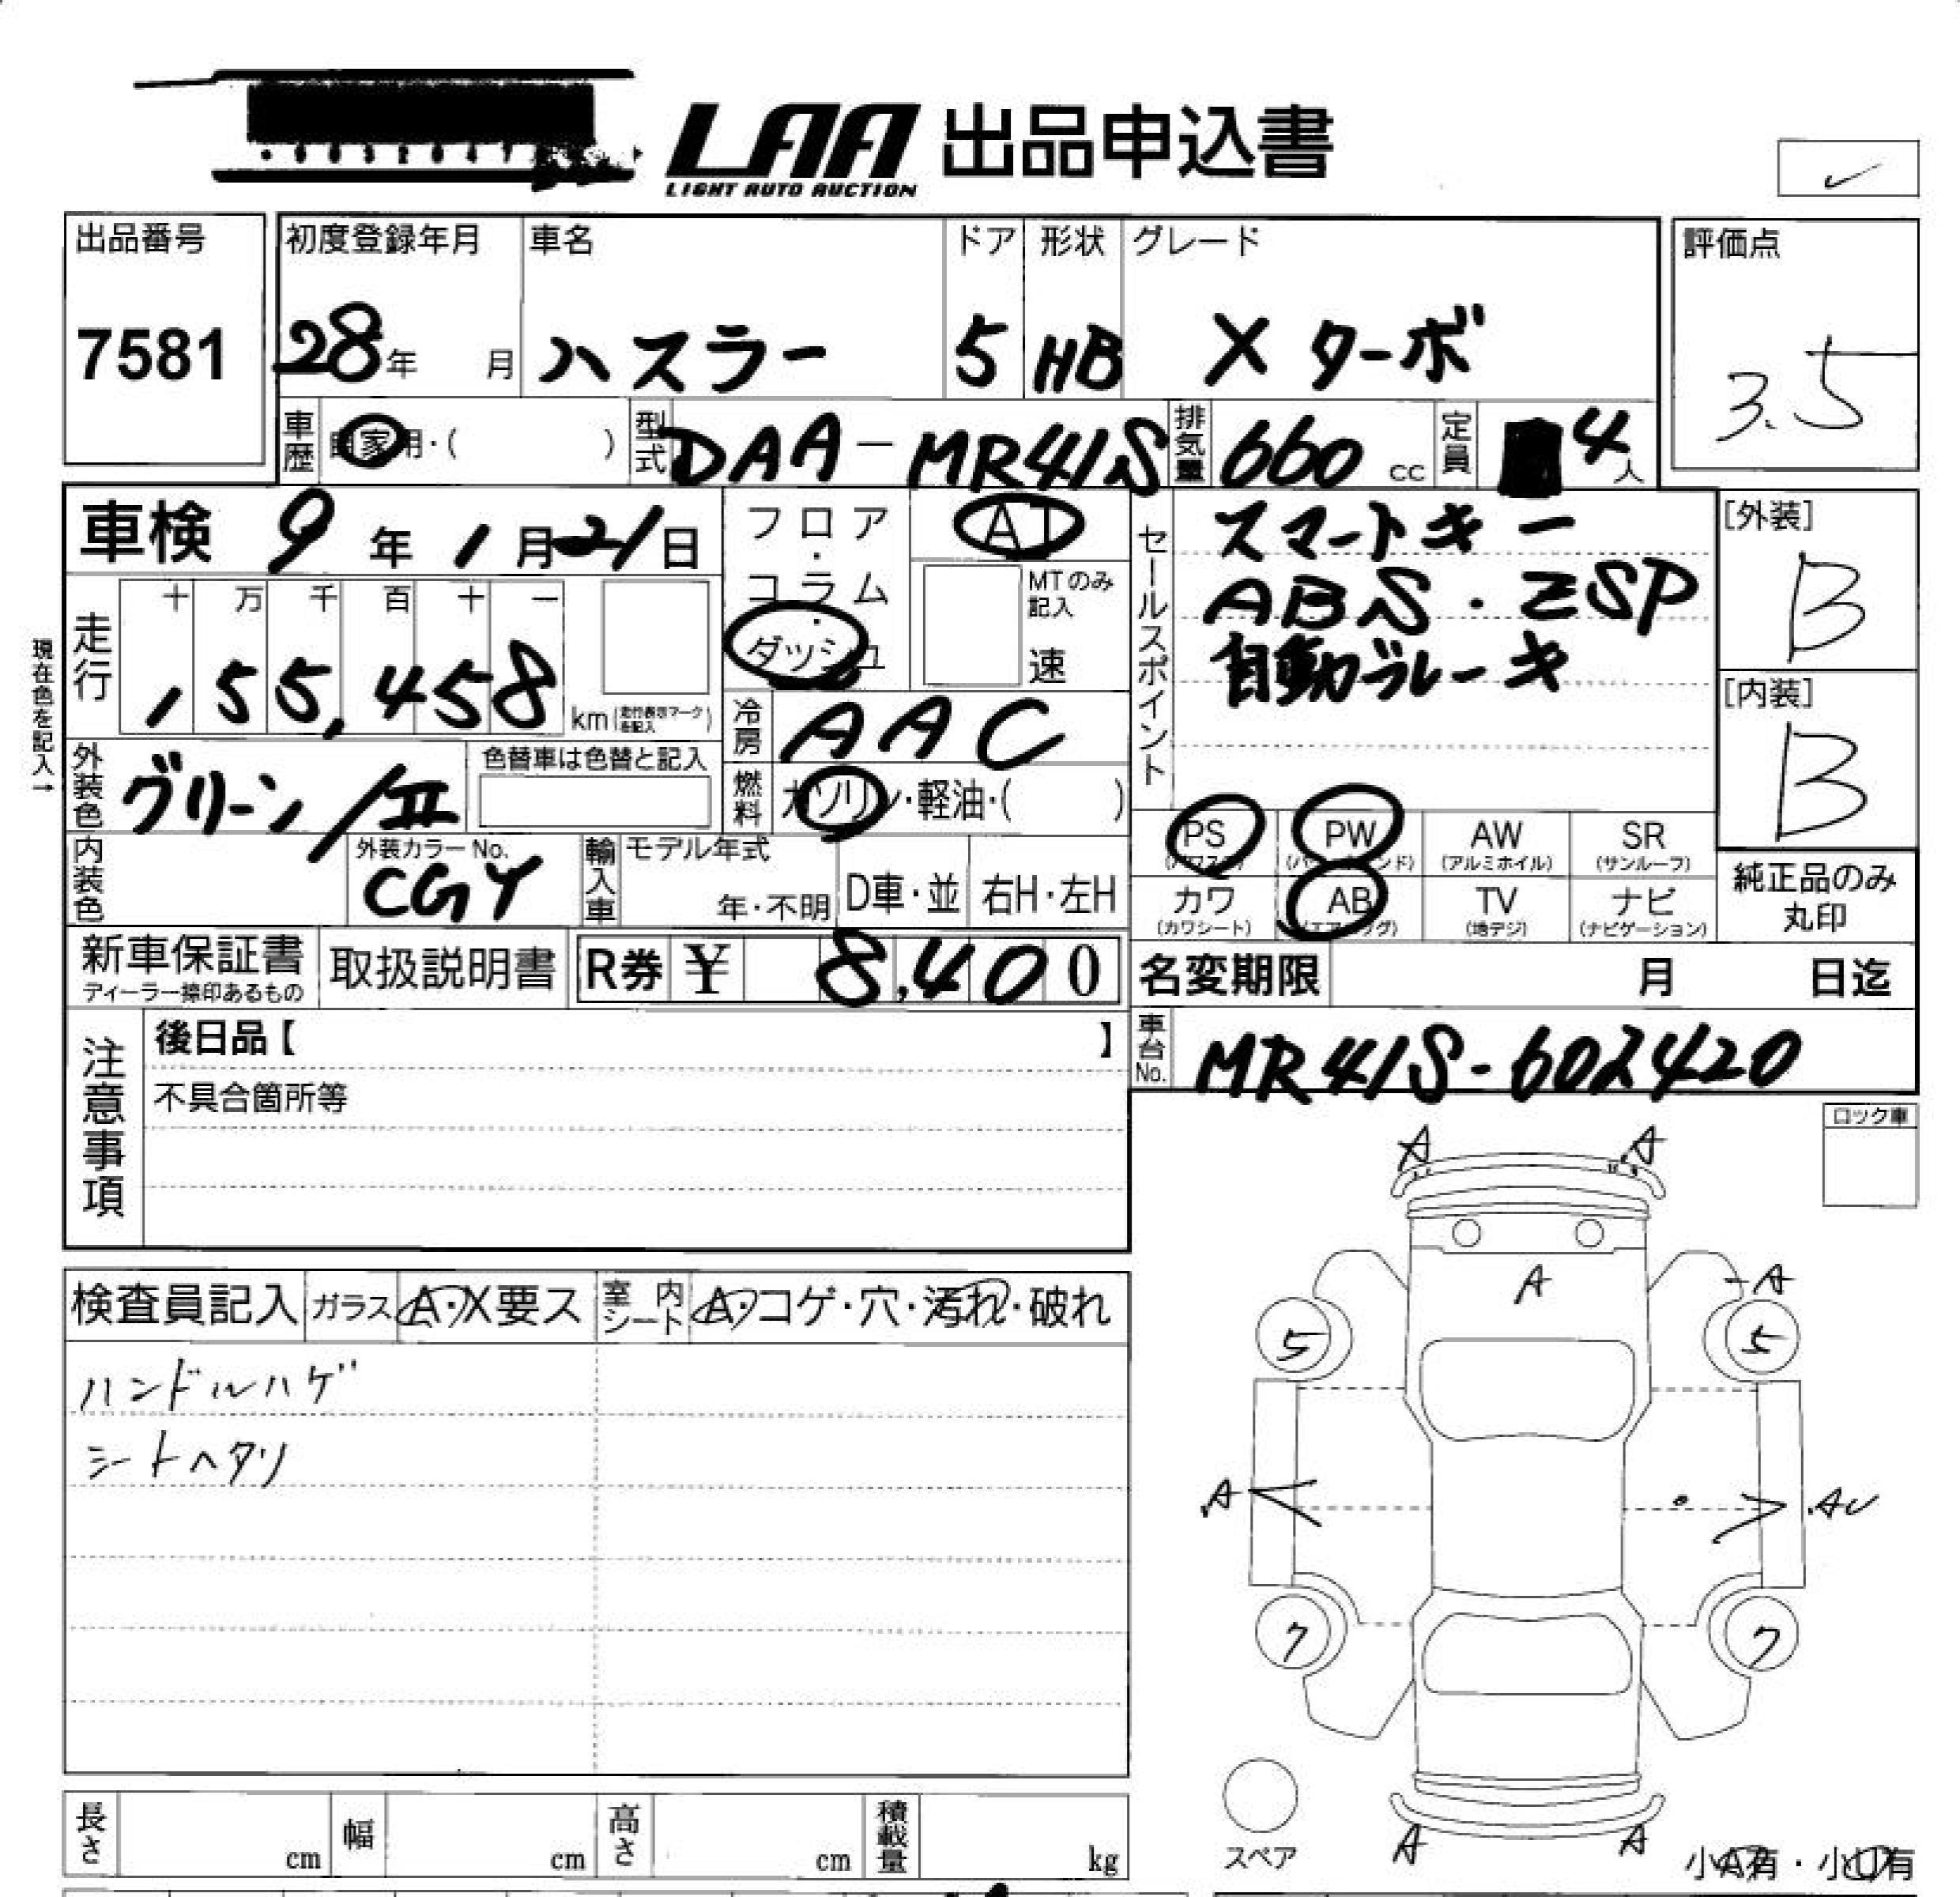 LAA 出品申込書
LIGHT AUTO AUCTION
出品番号
7581
初度登録年月
28年 月
車名
ハスラー
ドア
5
形状
HB
グレード
X ターボ
評価点
3.5
車歴 自家用・( )
型式 DAA-MR41S
排気量 660 cc
定員 4人
車検 9年1月21日
フロア・コラム・ダッシュ
AT
MTのみ記入
速
セールスポイント
スマートキー
ABS・ESP
自動ブレーキ
[外装]
B
[内装]
B
現在色を記入→
走行
十 万 千 百 十 一
155,458 km (走行表示マークを記入)
冷房 AAC
外装色 グリーン/II
色替車は色替と記入
燃料 ガソリン・軽油・( )
PS (パワステ)
PW (パワーウインド)
AW (アルミホイル)
SR (サンルーフ)
内装色
外装カラーNo.
CGY
輸入車
モデル年式
年・不明
D車・並
右H・左H
カワ (カワシート)
AB (エアバッグ)
TV (地デジ)
ナビ (ナビゲーション)
純正品のみ
丸印
新車保証書
ディーラー捺印あるもの
取扱説明書
R券 ¥ 8,400
名変期限 月 日迄
注意事項
後日品【 】
不具合箇所等
車台No. MR41S-602420
ロック車
A A
A
A
5 5
A
AU
7 7
A A
スペア
小A有・小U有
検査員記入
ガラス A・X要ス
室内シート A・コゲ・穴・汚れ・破れ
ハンドルハゲ
シートヘタリ
長さ cm
幅 cm
高さ cm
積載量 kg